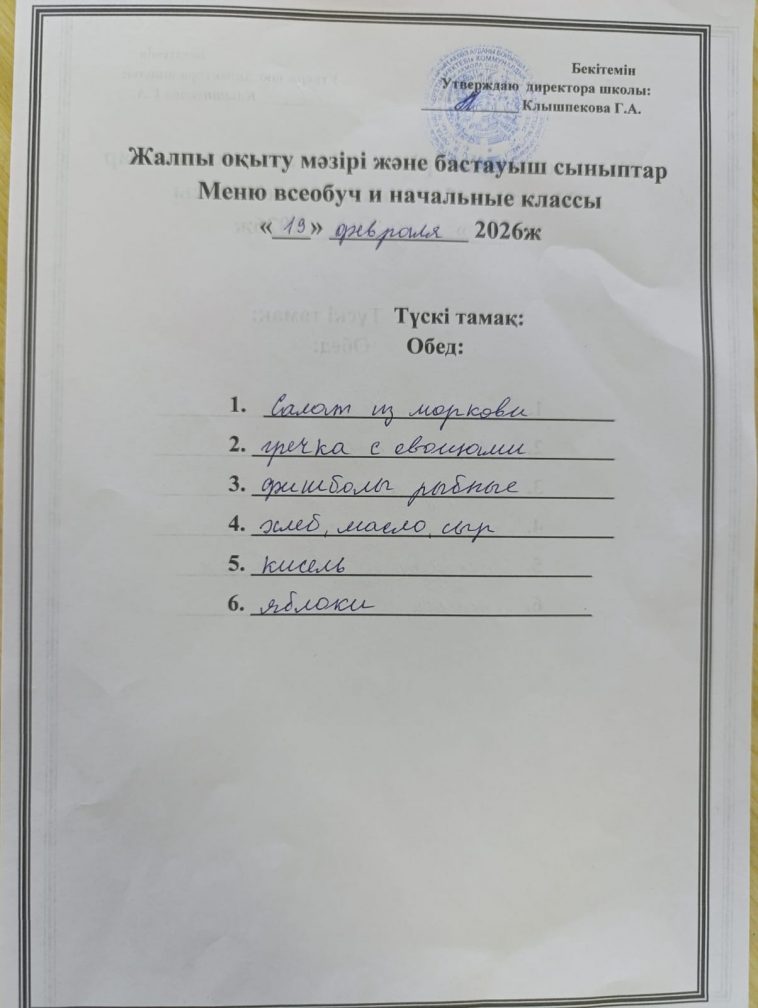 Бекітемін
Утверждаю директора школы:
Клышпекова Г.А.
Жалпы оқыту мәзірі және бастауыш сыныптар
Меню всеобуч и начальные классы
«19» февраля 2026ж
Түскі тамақ:
Обед:
1. Салат из моркови
2. гречка с овощами
3. фишболы рыбные
4. хлеб, масло, сыр
5. кисель
6. яблоки